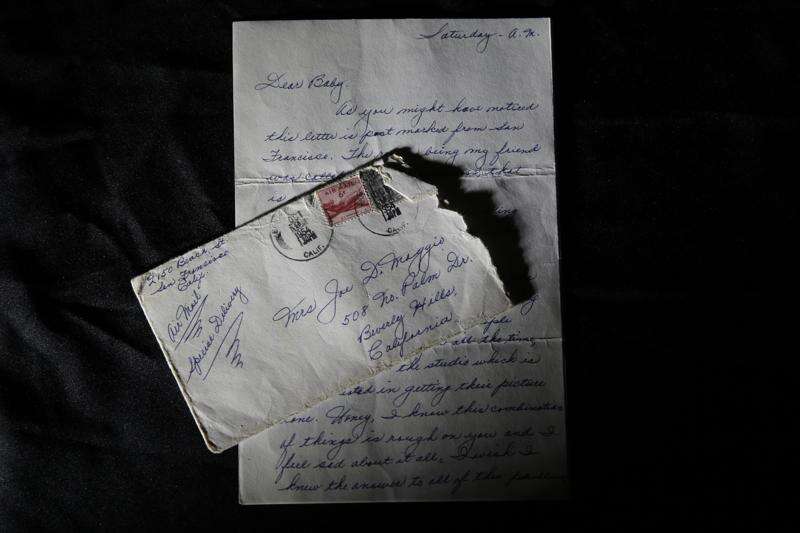 Saturday - A.M.
Dear Baby,
As you might have noticed
this letter is post marked from San
Francisco. The being my friend
was that
is
2150 Beach St.
San Francisco
Calif.
Air Mail
Special Delivery
AIR MAIL
6¢
CALIF.
Mrs Joe D. Maggio
508 No. Palm Dr.
Beverly Hills,
California
all the time,
the studio which is
in getting their picture
Honey, I know this combination
of things is rough on you and I
feel sad about it all. I wish I
knew the answer to all of this